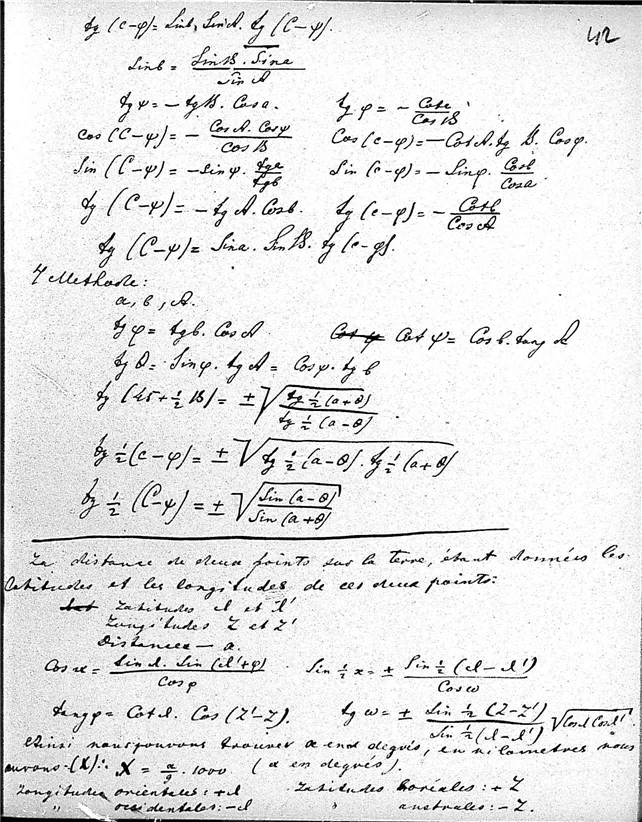 42
tg (c–φ) = Sin b. Sin A. tg (C–ψ).
Sin b = (Sin B . Sin a) / (Sin A)
tg ψ = – tg B. Cos a. tg φ = – (Cot a) / (Cos B)
Cos (C–ψ) = – (Cos A. Cos ψ) / (Cos B) Cos (c–φ) = – Cot A. tg B. Cos φ.
Sin (C–ψ) = – Sin ψ. (tg a) / (tg b) Sin (c–φ) = – Sin φ. (Cos b) / (Cos a)
tg (C–ψ) = – tg A. Cos b. tg (c–φ) = – (Cot b) / (Cos A)
tg (C–ψ) = Sin a. Sin B. tg (c–φ).
7 Methode:
a, b, A.
tg φ = tg b. Cos A Cot ψ Cot ψ = Cos b. tang A
tg θ = Sin φ. tg A = Cos φ. tg b
tg (45 + ½ B) = ± √((tg ½ (a+θ)) / (tg ½ (a–θ)))
tg ½ (c–φ) = ± √(tg ½ (a–θ). tg ½ (a+θ))
tg ½ (C–ψ) = ± √((Sin (a–θ)) / (Sin (a+θ)))
La distance de deux points sur la terre, étant données les
Latitudes et les longitudes de ces deux points:
Latitudes l et l'
Longitudes L et L'
Distances — a.
Cos x = (Sin l. Sin (l'+φ)) / (Cos φ) Sin ½ x = ± (Sin ½ (l–l')) / (Cos ω)
tang φ = Cot l. Cos (L'–L). tg ω = ± (Sin ½ (L–L')) / (Sin ½ (l–l')) √(Cos l Cos l')
Ainsi nous pouvons trouver x en degrés, en kilomètres nous
aurons (X): X = (x/9) . 1000 (x en degrés).
Longitudes orientales: + l Latitudes boréales: + L
" occidentales: – l " australes: – L.